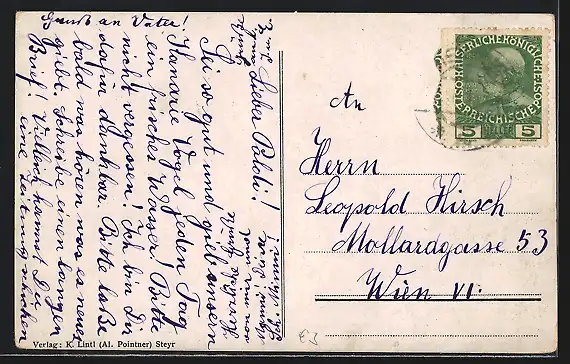 Gruß an Vater!
Lieber Poldi!
Sei so gut und gib unsern
Kanarie Vogel jeden Tag
ein frisches Wasser! Bitte
nicht vergessen! Ich bin Dir
dafür dankbar. Bitte laße
bald was hören was es neues
gibt. Schreibe einen langen
Brief! Vielleich kannst Du
eine Zeitung schicken
An
Herrn
Leopold Hirsch
Mollardgasse 53
Wien VI.
KAISERLICHEKÖNIGLICHE
ÖSTERREICHISCHE
5 HELLER 5
Verlag: K. Lintl (Al. Pointner) Steyr